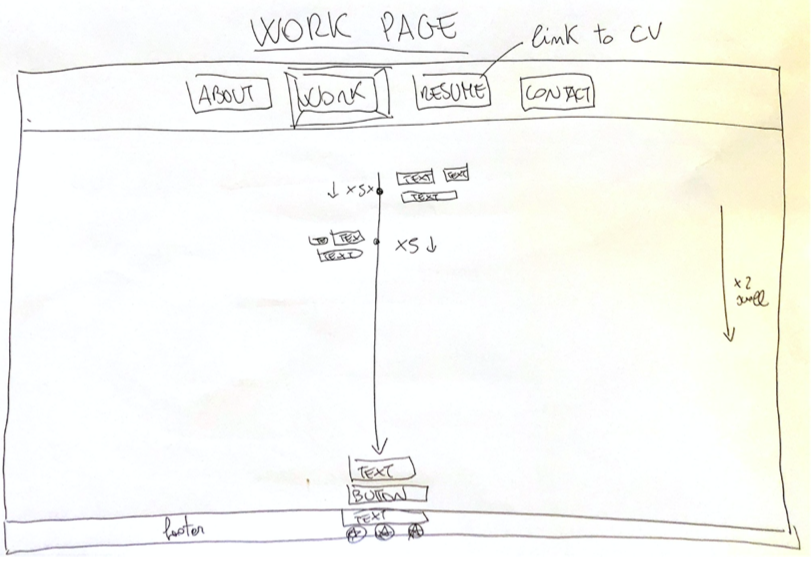 WORK PAGE
link to CV
ABOUT WORK RESUME CONTACT
↓ x5x TEXT TEXT
TEXT
TEX x5 ↓
TEXT
x2
scroll
TEXT
BUTTON
TEXT
footer